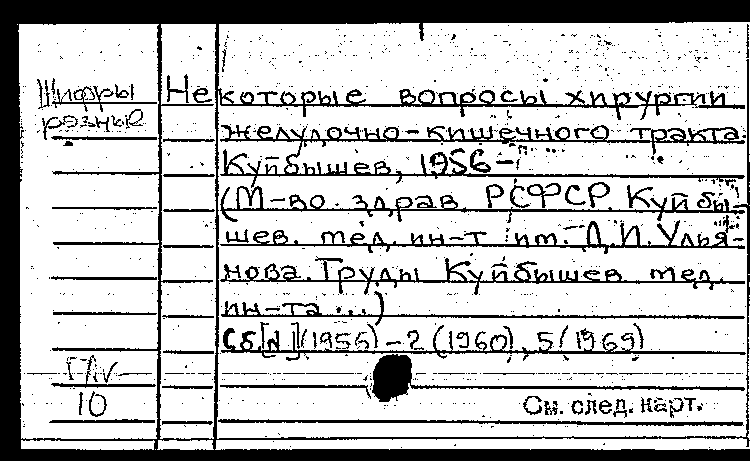 Шифры
разные
Некоторые вопросы хирургии
желудочно-кишечного тракта.
Куйбышев, 1956-
(М-во. здрав. РСФСР. Куйбы-
шев. мед. ин-т им. Д.И. Улья-
нова. Труды Куйбышев мед.
ин-та ...)
Сб. [1] (1956) - 2 (1960), 5 (1969)
10
См. след. карт.